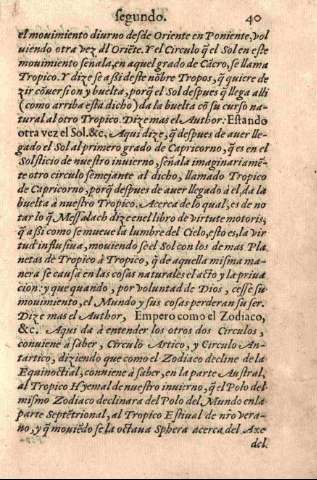 segundo. 40
el movimiento diurno desde Oriente en Poniente, vol
uiendo otra vez dl Oriēte. Y el Circulo q̃ el Sol en este
movimiento señala, en aquel grado de Cãcro, se llama
Tropico. Y dize se aßi deste nõbre Tropos, q̃ quiere de
zir cõuersion y buelta, porq̃ el Sol despues q̃ llega alli
(como arriba esta dicho) da la buelta cõ su curso na-
tural al otro Tropico. Dize mas el Author: Estando
otra vez el Sol. &c. Aqui dize, q̃ despues de auer lle-
gado el Sol al primero grado de Capricorno, q̃ es en el
Solsticio de nuestro inuierno, señala imaginariamē-
te otro circulo semejante al dicho, llamado Tropico
de Capricorno, porq̃ despues de auer llegado à el, da la
buelta à nuestro Tropico. Acerca de lo qual, es de no
tar lo q̃ Messalach dize en el libro de virtute motoris,
q̃ aßi como se mueue la lumbre del Cielo, esto es, la vir
tud influsiua, moviendo se el Sol con los de mas Pla
netas de Tropico à Tropico, q̃ de aquella misma ma
nera se causa en las cosas naturales el acto y la priua
cion: y que quando, por voluntad de Dios, cesse su
movimiento, el Mundo y sus cosas perderan su ser.
Dize mas el Author, Empero como el Zodiaco,
&c. Aqui da à entender los otros dos Circulos,
conuiene à saber, Circulo Artico, y Circulo An-
tartico, diziendo que como el Zodiaco decline de la
Equinoctial, conuiene à saber, en la parte Austral,
al Tropico Hyemal de nuestro inuierno, q̃ el Polo del
mismo Zodiaco declinara del Polo del Mundo en la
parte Septētrional, al Tropico Estiual de nr̃o vera-
no, y q̃ moviēdo se la octaua Sphera acerca del Axe
del